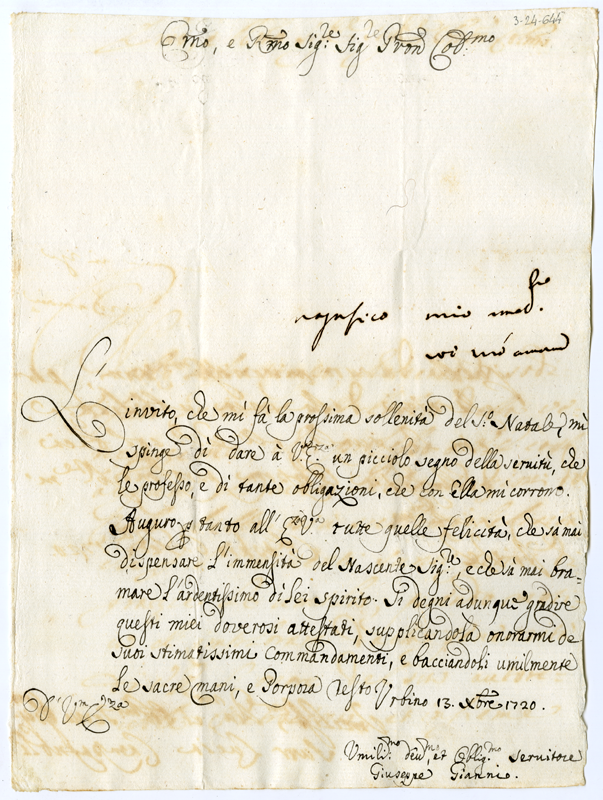 3-24-644
Em̃o, e Rm̃o Sig:re Sig:re Pron̄ Col:mo
mio
L'invito, che mi fà la prossima sollenità del S:o Natale, mi
spinge di dare à V. un picciolo segno della servitù, che
le professo, e di tante obligazioni, che con Ella mi corrono.
Auguro p tanto all' tutte quelle felicità, che sà mai
dispensare l'immensità del Nascente Sig:re, e che sà mai bra=
mare l'ardentissimo di lei spirito. Si degni adunque gradire
questi miei doverosi attestati, supplicandola onorarmi de
suoi stimatissimi commandamenti, e bacciandoli umilmente
le sacre mani, e Porpora resto Urbino 13. Xbre 1720.
Umilis:mo dev:mo, et Oblig:mo servitore
Giuseppe Gianni.